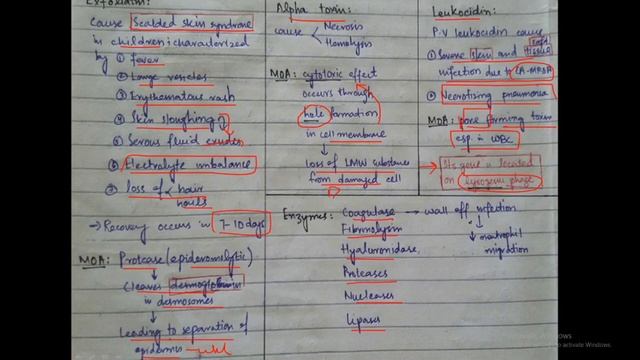 Exfoliatin:
cause Scalded skin syndrome
in children: characterized
by ① fever
② Large vesicles
③ Erythematous rash
④ Skin sloughing
⑤ Serous fluid exudes
⑥ Electrolyte imbalance
⑦ loss of hair
nails
→ Recovery occurs in 7-10 days
MOA: Protease (epidermolytic)
↓
Cleaves desmoglein
in desmosomes
↓
Leading to separation of
epidermis
Alpha toxin:
cause Necrosis
Hemolysis
MOA: cytotoxic effect
occurs through
hole formation
in cell membrane
↓
Loss of LMW substance
from damaged cell
Leukocidin:
P.V leukocidin cause
① Severe skin and tissue
infection due to CA-MRSA
② Necrotizing pneumonia
MOA: pore forming toxin
esp. in WBC
→ Its gene is located
on lysogenic phage
Enzymes: Coagulase → wall off infection
↓
↓ neutrophil
migration
Fibrinolysin
Hyaluronidase
Proteases
Nucleases
Lipases
to activate Windows.